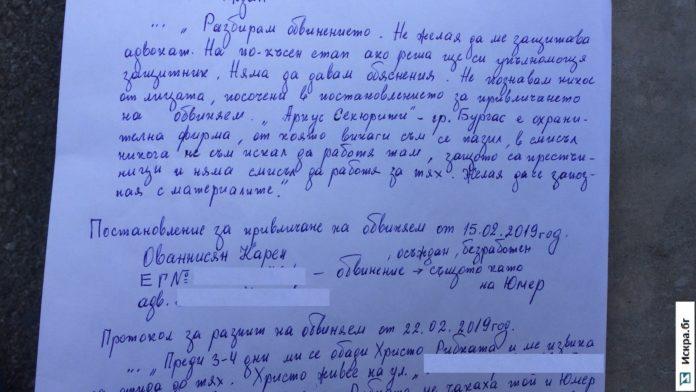 ... „Разбирам обвинението. Не желая да ме защитава
адвокат. На по-късен етап ако реша ще си упълномощя
защитник. Няма да давам обяснения. Не познавам никое
от лицата, посочени в постановлението за привличането
на обвиняем. „Аркус Секюрити" - гр. Бургас е охрани-
телна фирма, от която винаги съм се пазил, в смисъл
никога не съм искал да работя там, защото са престъп-
ници и няма смисъл да работя за тях. Желая да се запоз-
ная с материалите."
Постановление за привличане на обвиняем от 15.02.2019 год.
Ованнисян Карен , осъждан, безработен
ЕГ№ - обвинение → същото като
адв. на Юмер
Протокол за разпит на обвиняем от 22.02.2019 год.
... „Преди 3-4 дни ми се обади Христо Рибката и ме извика
да отида до тях. Христо живее на ул.
Рибката не такаха той и Юмер
Искра.бг